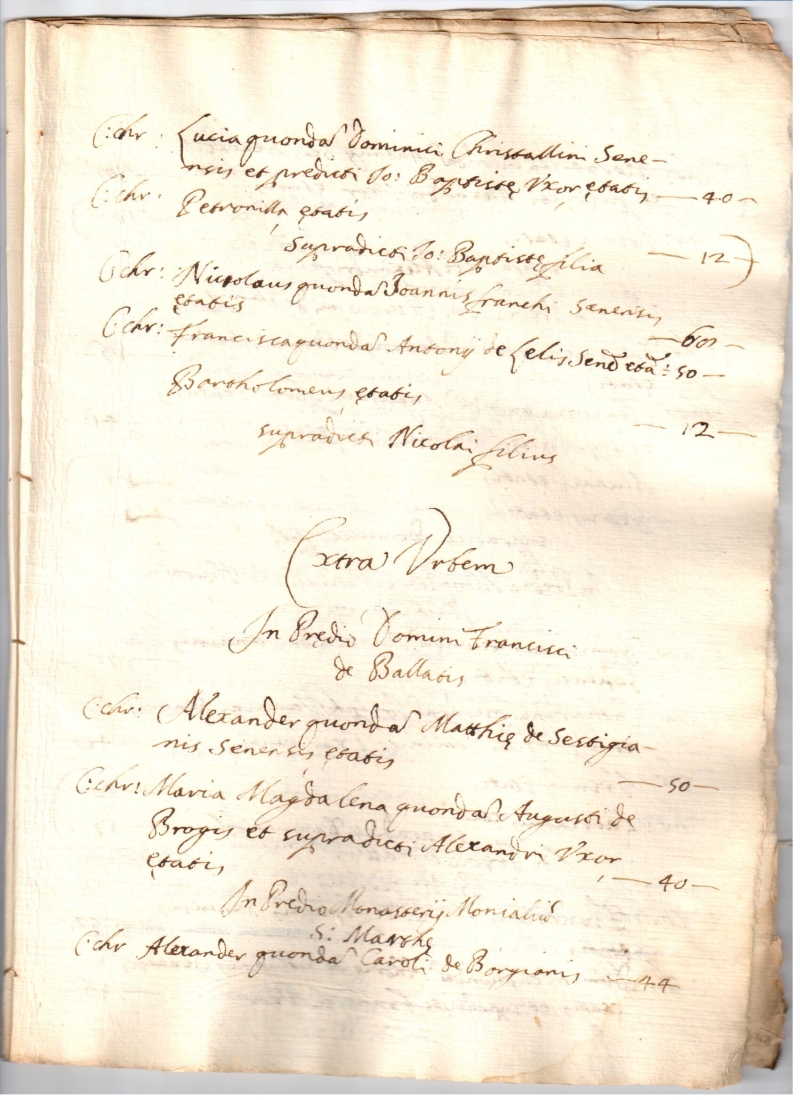 C: chr: Lucia quondã Dominici Christallini Sene-
nsis et predicti Jo: Baptistę Vxor ętatis — 40 —
C: chr: Petronilla ętatis
supradicti Jo: Baptistę filia — 12 )
C: chr: Nicolaus quondã Joannis franchi senensis
ętatis — 60 —
C: chr: Francisca quondã Antonij de Lelis Senẽ eta: 50 —
Bartholomeus ętatis
supradicti Nicolai filius — 12 —
Extra Vrbem
In Prędio Domini Francisci
de Ballatis
C: chr: Alexander quondã Matthię de Sestigia-
nis Senensis ętatis — 50 —
C: chr: Maria Magdalena quondã Augusti de
Brogis et supradicti Alexandri Vxor
ętatis — 40 —
In Prędio Monasterij Monialiũ
S: Marthę
C: chr Alexander quondã Caroli de Borgianis — 44